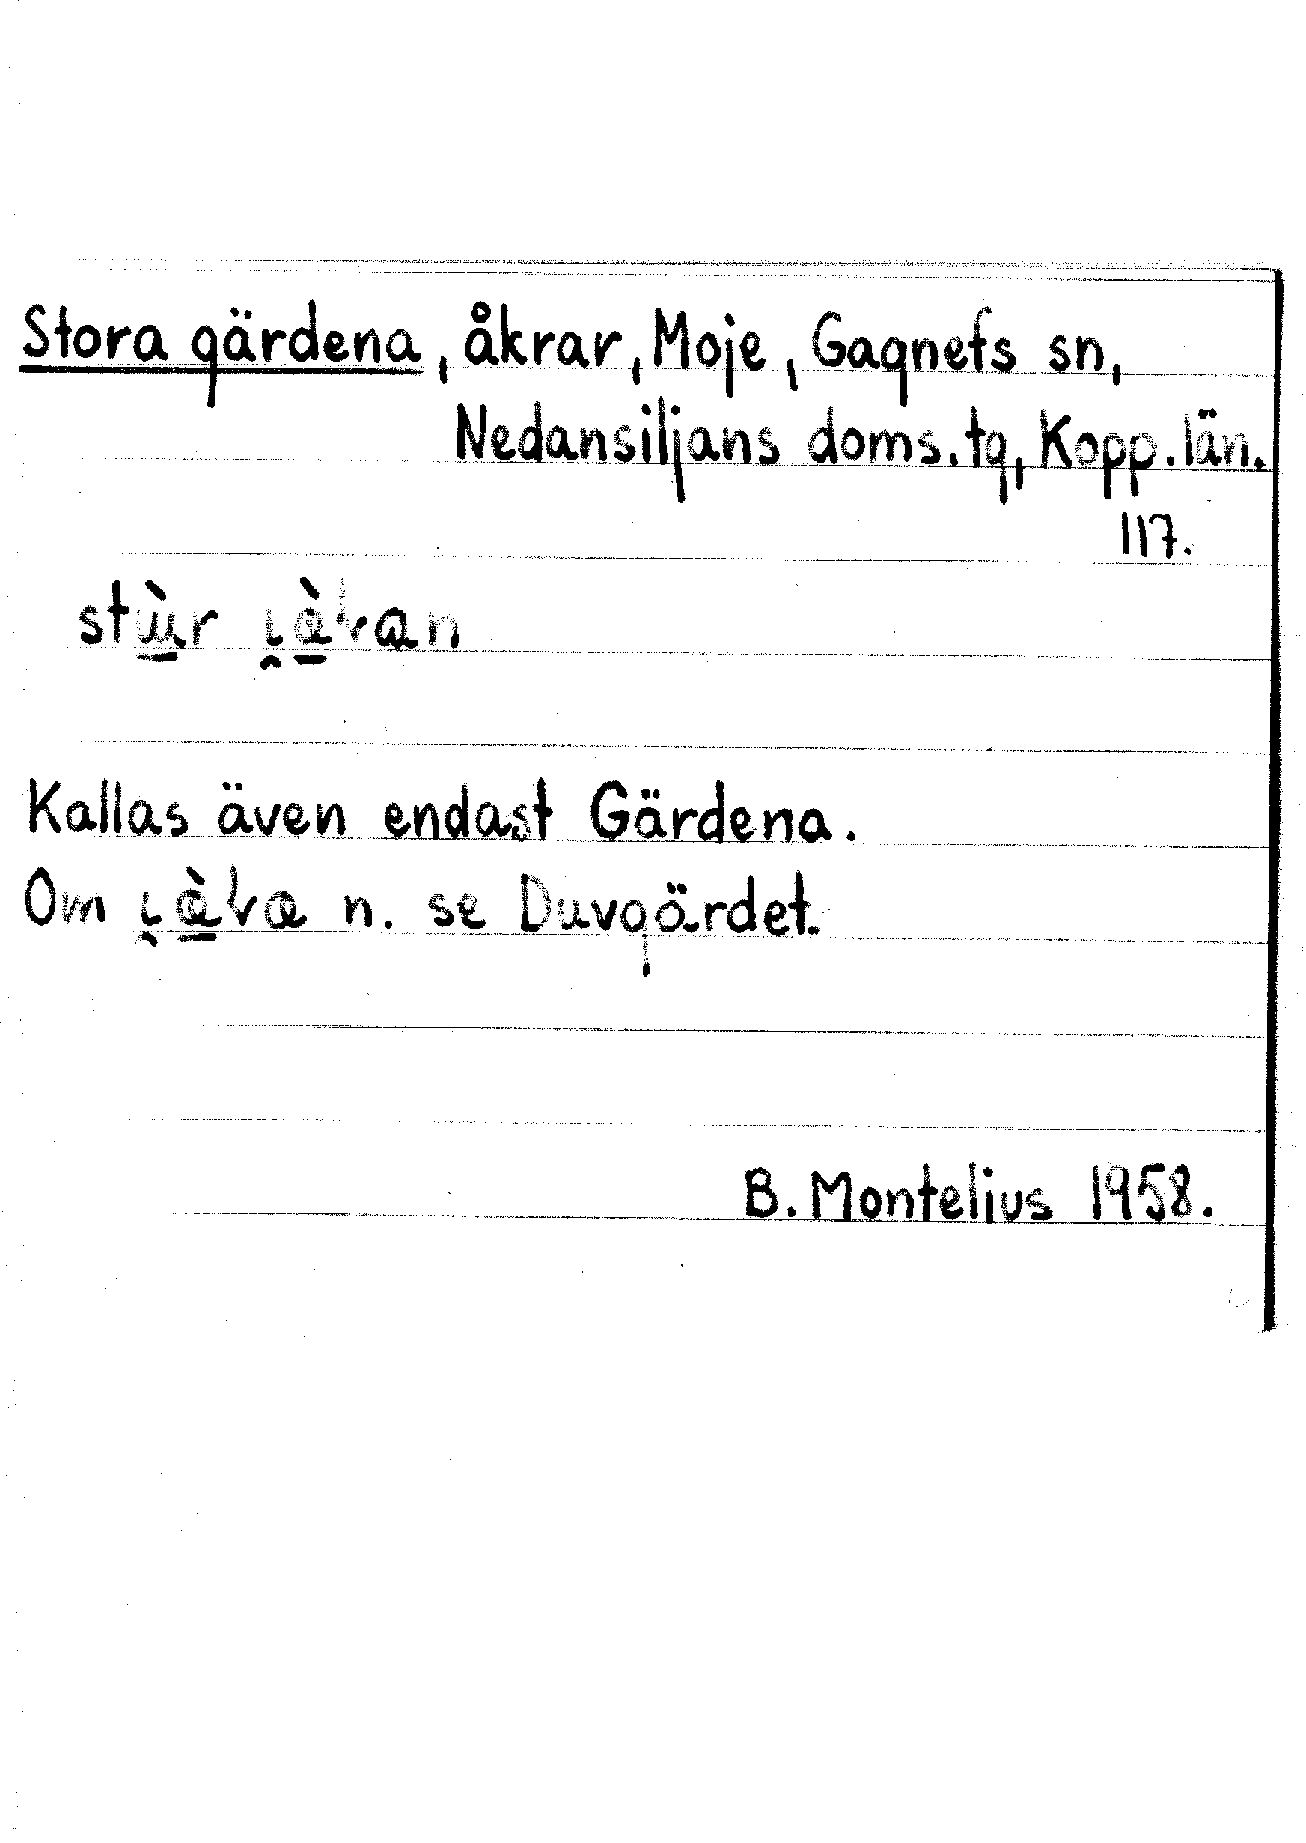 Stora gärdena, åkrar, Moje, Gagnefs sn,
Nedansiljans doms.tg, Kopp.län.
117.
stùr
Kallas även endast Gärdena.
Om n. se Duvgärdet.
B. Montelius 1958.